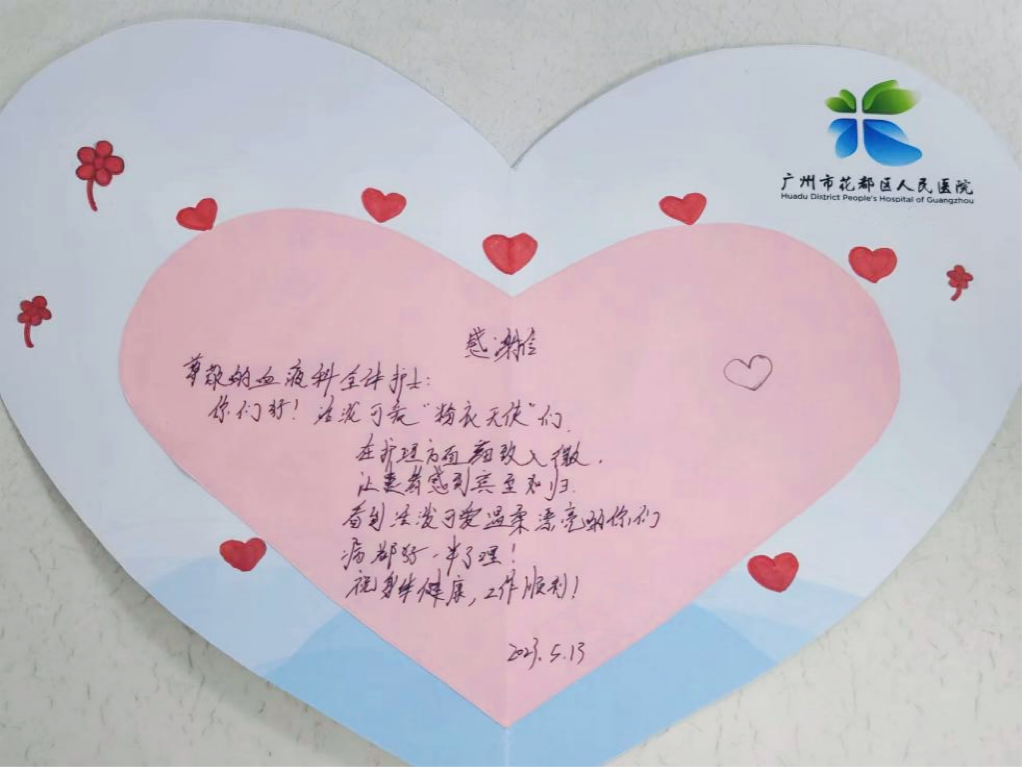 广州市花都区人民医院
Huadu District People's Hospital of Guangzhou
感谢信
尊敬的血液科全体护士：
你们好！活泼可爱“粉衣天使”们，
在护理方面细致入微，
让患者感到宾至如归。
看到活泼可爱温柔漂亮的你们
病都好一半了哩！
祝身体健康，工作顺利！
2023.5.13